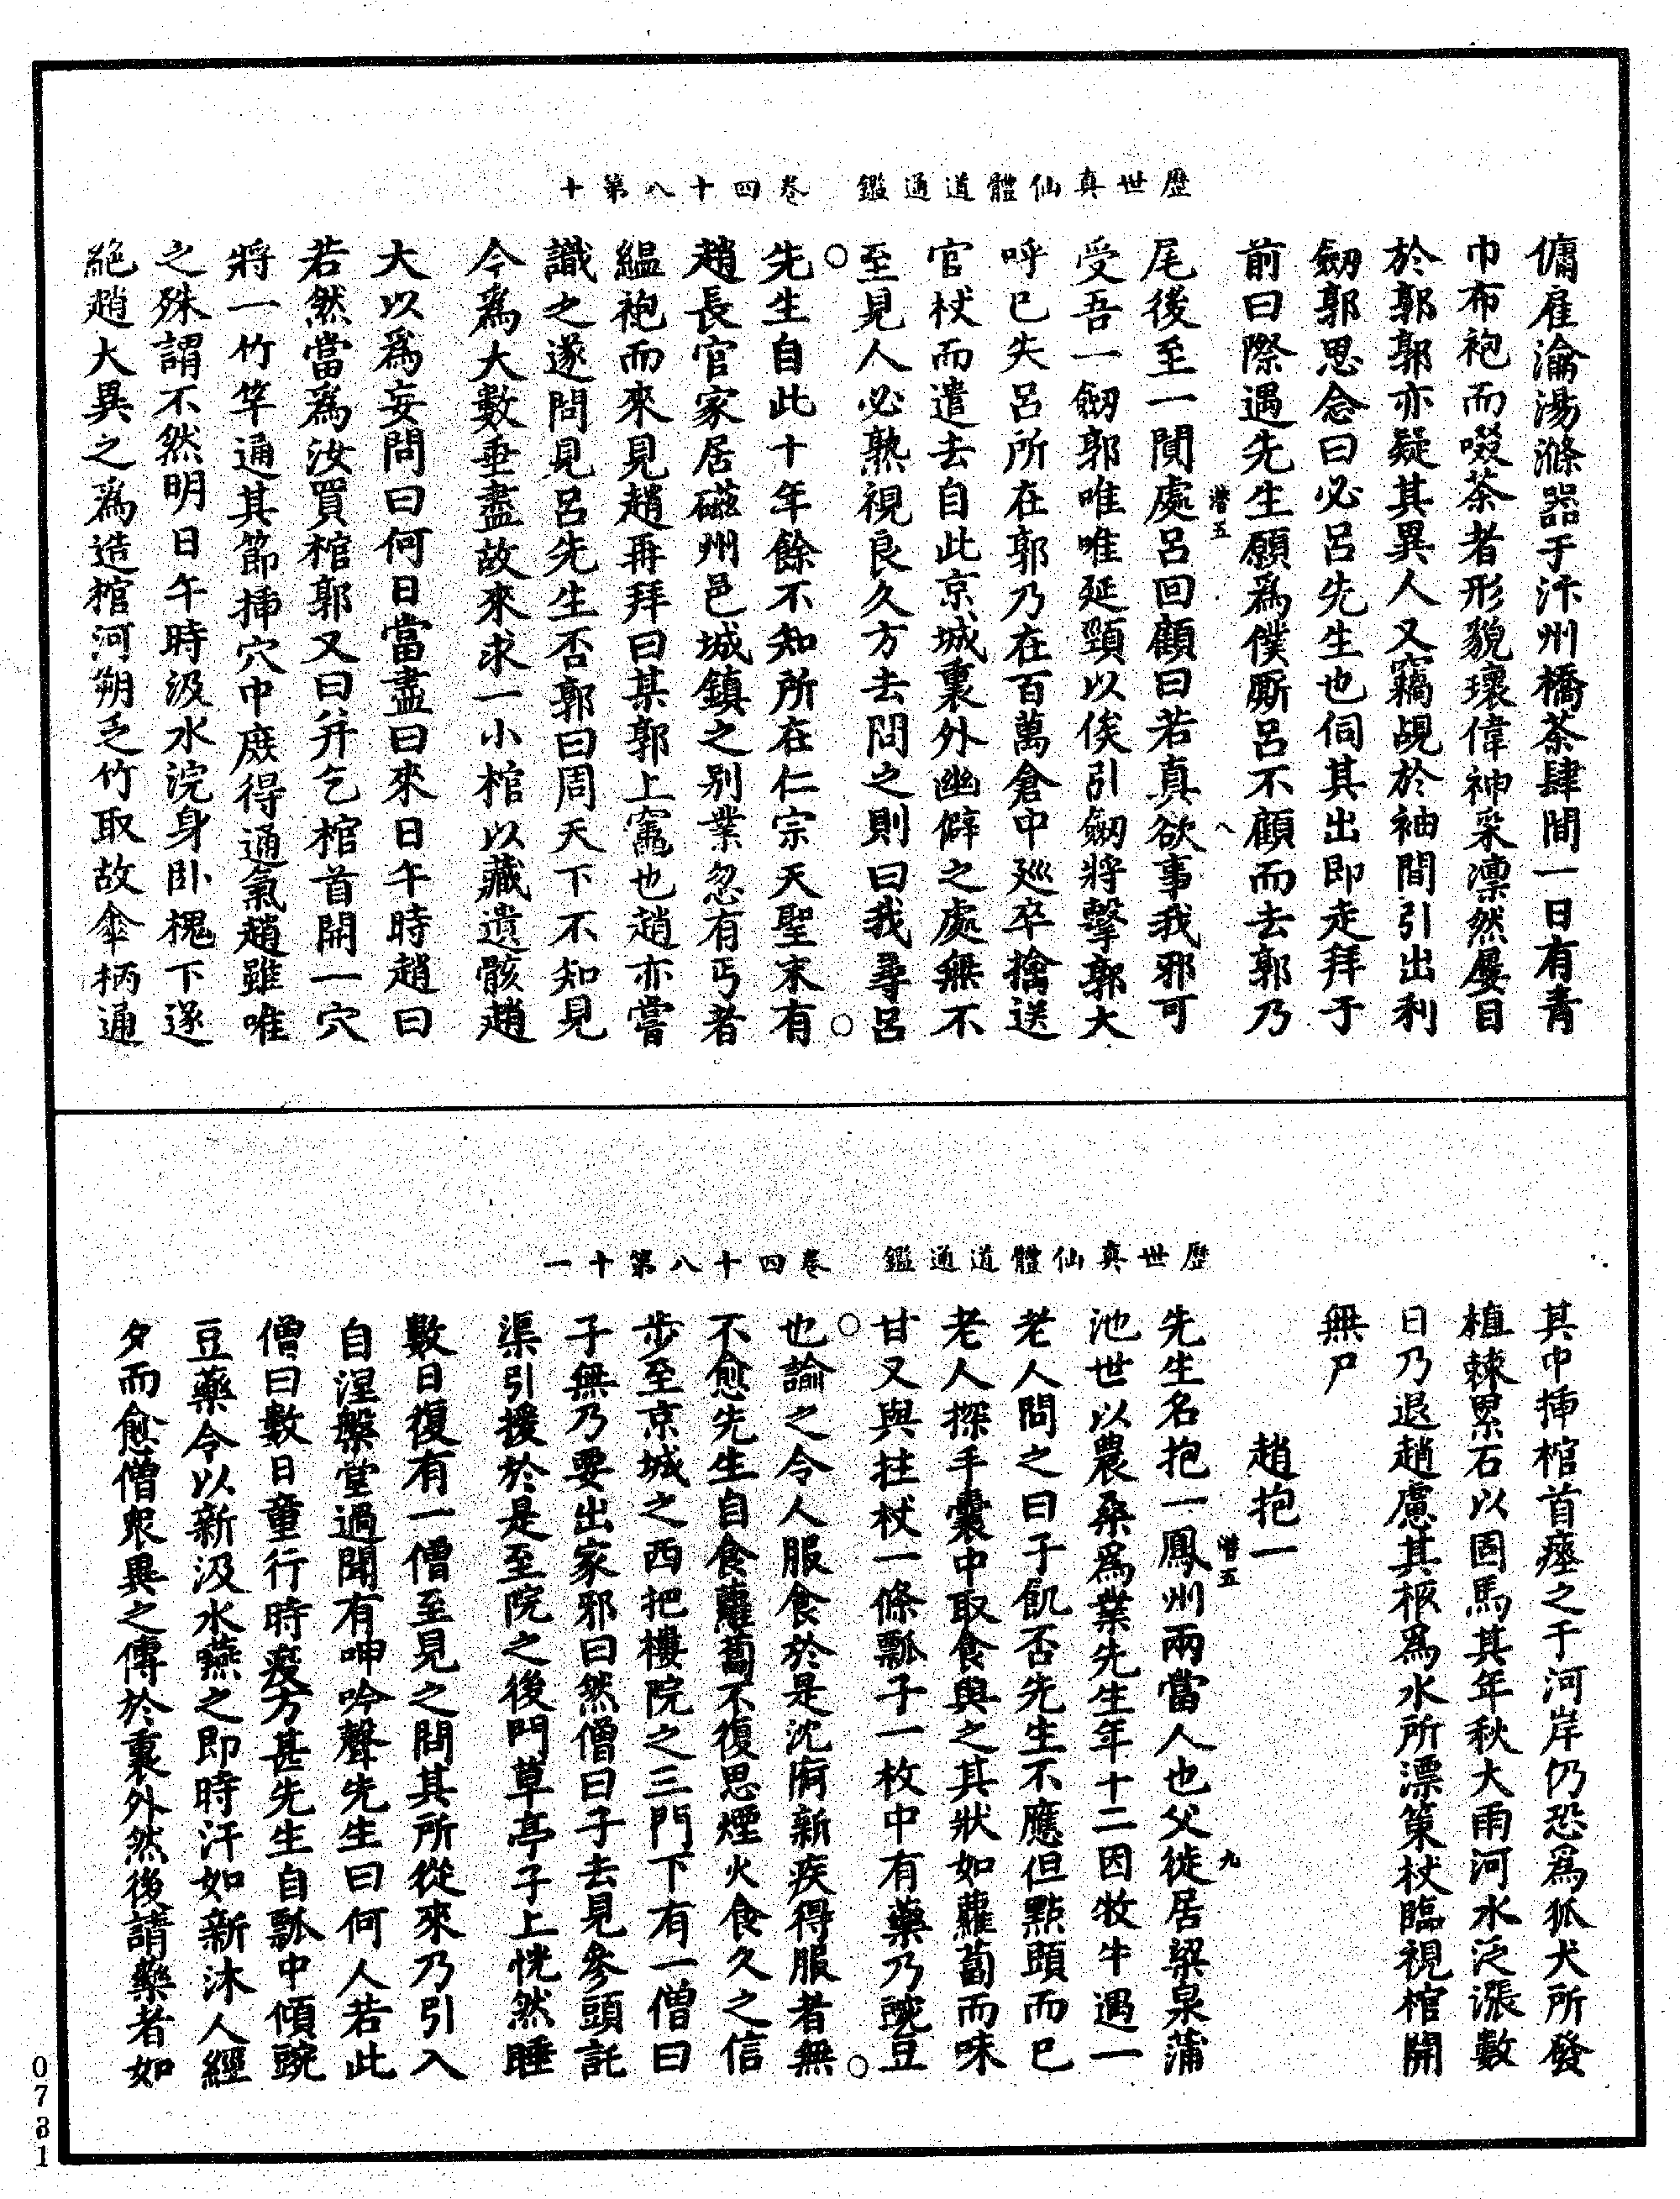 歷世真仙體道通鑑　卷四十八第十
傭雇瀹湯滌器于汴州橋茶肆間一日有青
巾布袍而啜茶者形貌瓌偉神采凛然屢目
於郭郭亦疑其異人又竊覘於袖間引出利
劒郭思念曰必呂先生也伺其出即走拜于
前曰際遇先生願爲僕厮呂不顧而去郭乃
譛五　八
尾後至一閴處呂回顧曰若真欲事我邪可
受吾一劒郭唯唯延頸以俟引劒將擊郭大
呼已失呂所在郭乃在百萬倉中廵卒擒送
官杖而遣去自此京城裏外幽僻之處無不
至見人必熟視良久方去問之則曰我尋呂
先生自此十年餘不知所在仁宗天聖末有
趙長官家居磁州邑城鎮之别業忽有丐者
緼袍而來見趙再拜曰某郭上竈也趙亦嘗
識之遂問見呂先生否郭曰周天下不知見
今爲大數垂盡故來求一小棺以藏遺骸趙
大以爲妄問曰何日當盡曰來日午時趙曰
若然當爲汝買棺郭又曰并乞棺首開一穴
將一竹竿通其節揷穴中庶得通氣趙雖唯
之殊謂不然明日午時汲水浣身卧槐下遂
絶趙大異之爲造棺河朔乏竹取故傘柄通
歷世真仙體道通鑑　卷四十八第十一
其中揷棺首瘞之于河岸仍恐爲狐犬所發
植棘累石以固焉其年秋大雨河水泛漲數
日乃退趙慮其柩爲水所漂策杖臨視棺開
無尸
趙抱一
譛五　九
先生名抱一鳳州兩當人也父徙居梁泉蒲
池世以農桑爲業先生年十二因牧牛遇一
老人問之曰子飢否先生不應但點頭而已
老人探手囊中取食與之其狀如蘿蔔而味
甘又與拄杖一條瓢子一枚中有藥乃豌豆
也諭之令人服食於是沈痾新疾得服者無
不愈先生自食蘿蔔不復思煙火食久之信
步至京城之西把樓院之三門下有一僧曰
子無乃要出家邪曰然僧曰子去見參頭託
渠引援於是至院之後門草亭子上恍然睡
數日復有一僧至見之問其所從來乃引入
自涅槃堂過聞有呻吟聲先生曰何人若此
僧曰數日童行時疫方甚先生自瓢中傾豌
豆藥令以新汲水嚥之即時汗如新沐人經
夕而愈僧衆異之傳於裏外然後請藥者如
0781